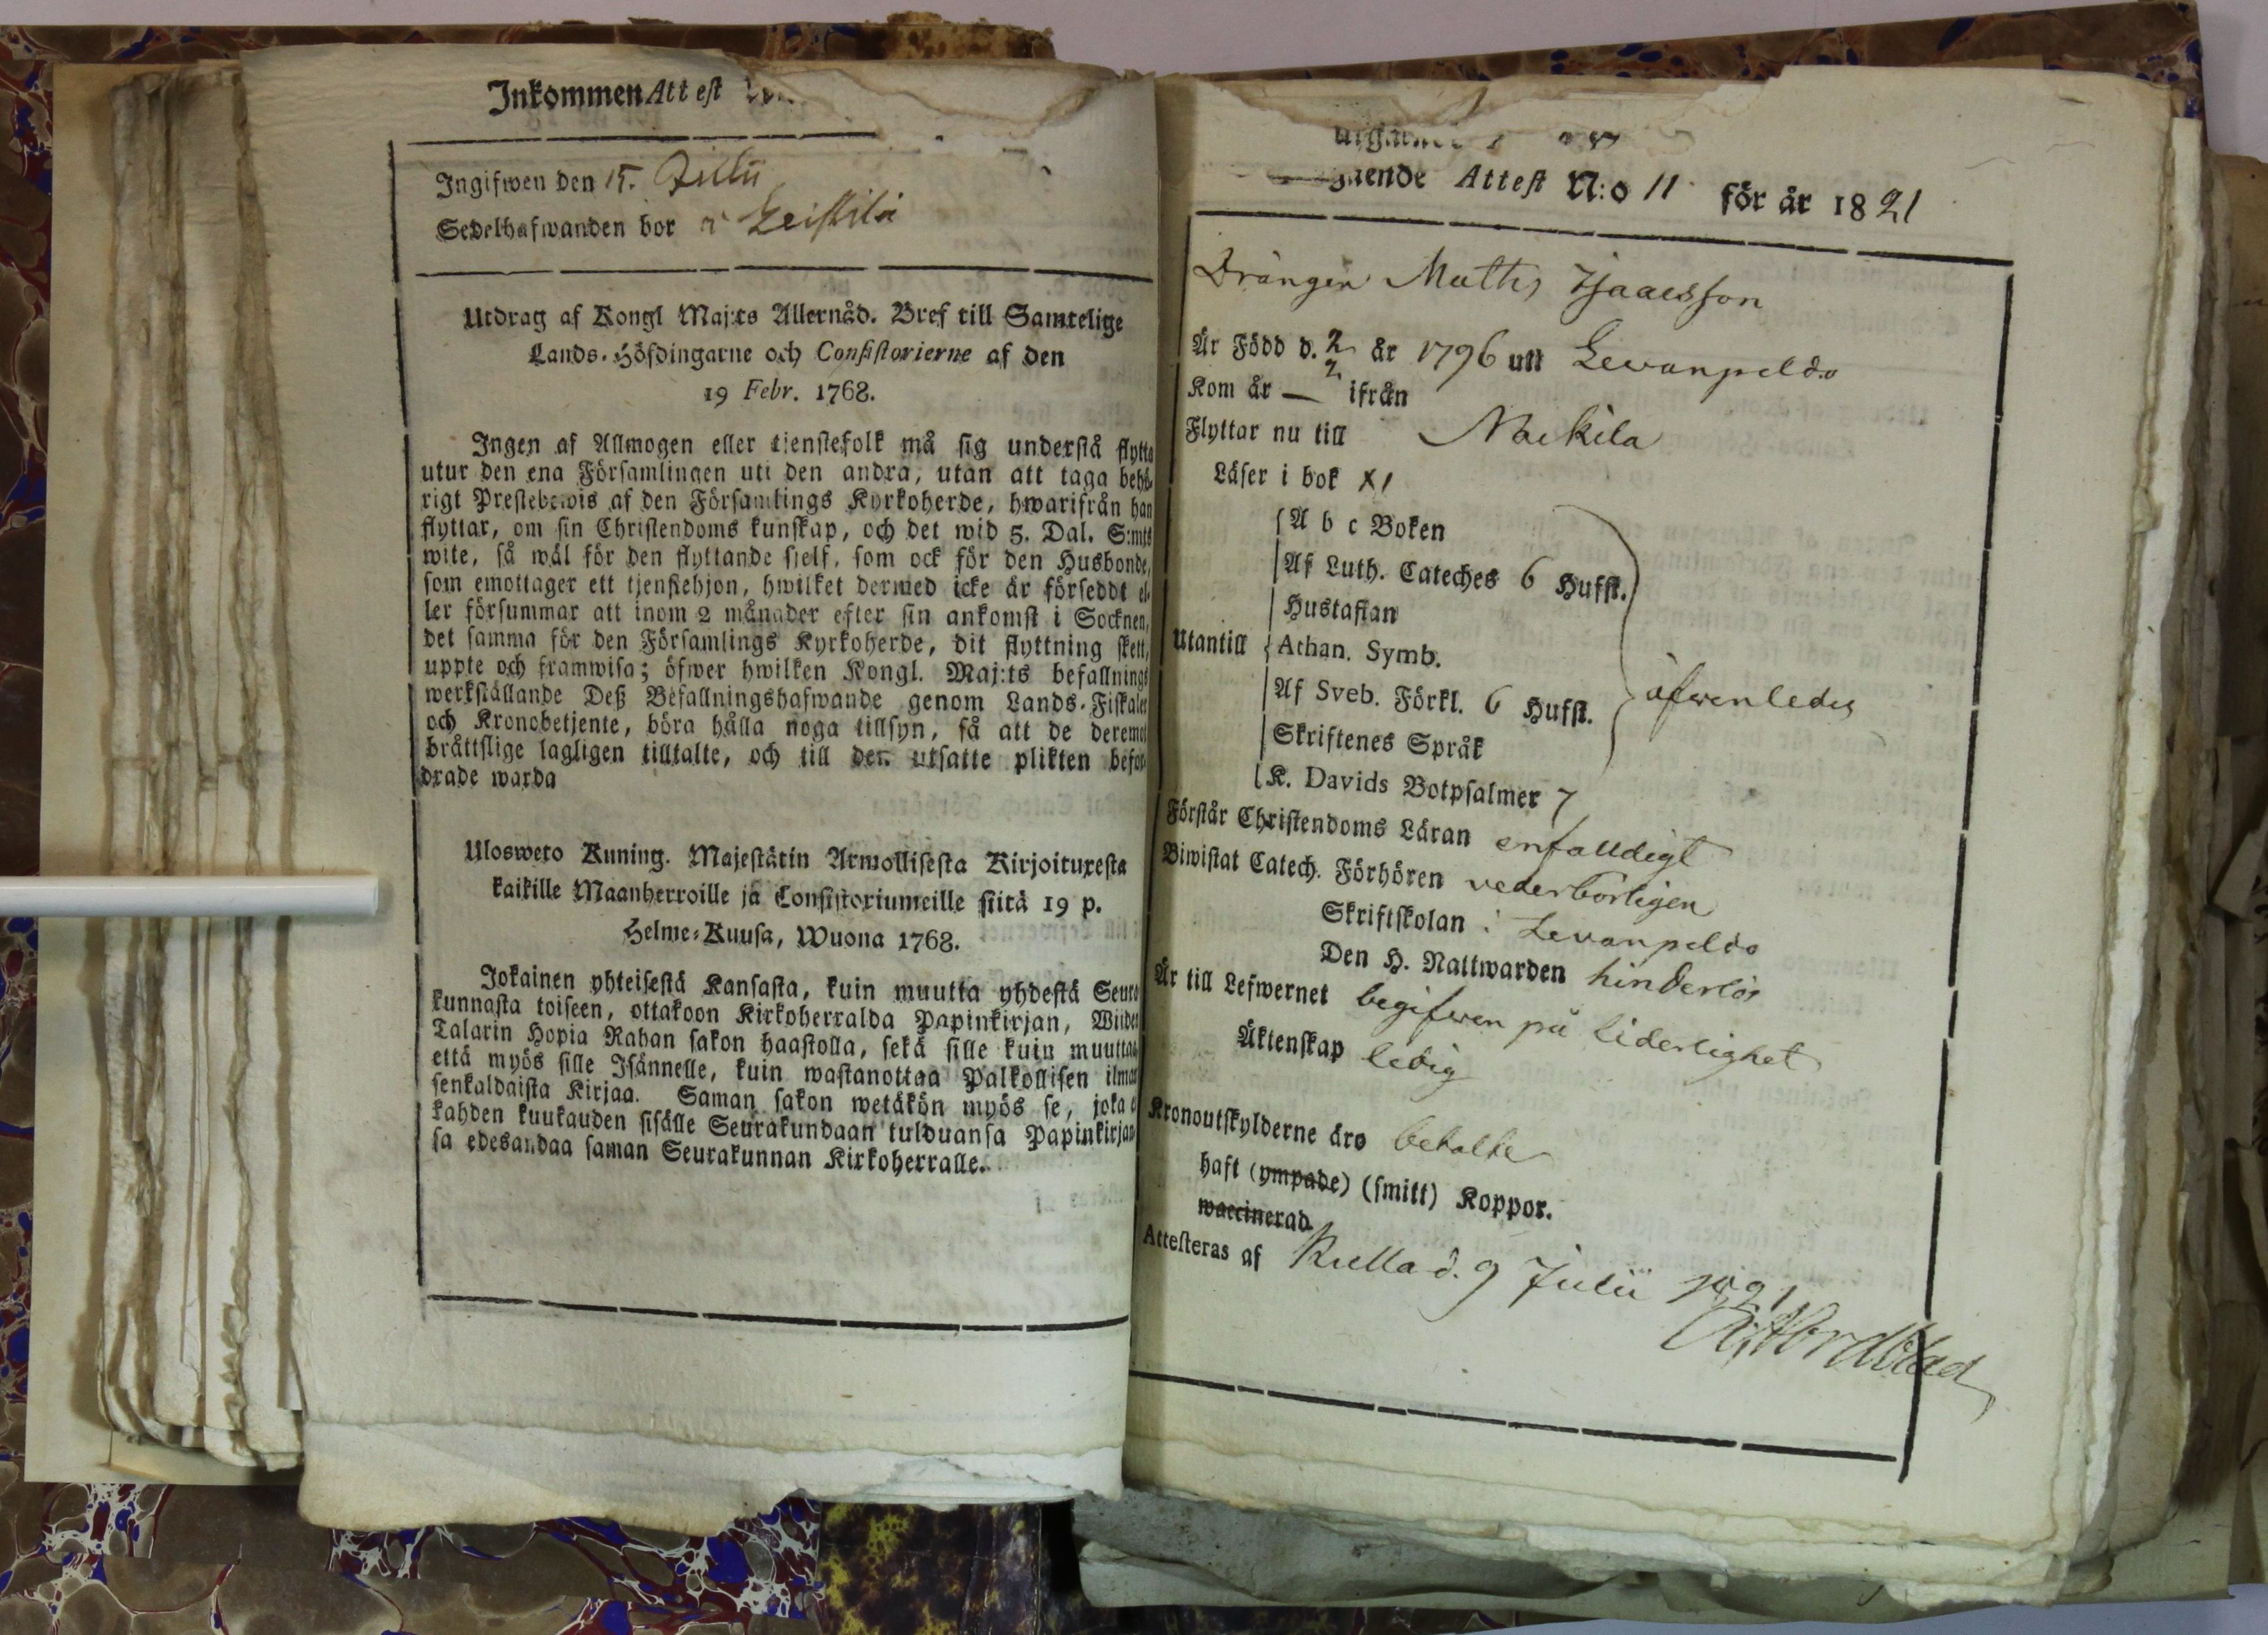 Inkommen Attest
Ingifwen den 15. Julii
Sedelhafwanden bor i Leistilä
Utdrag af Kongl Maj:ts Allernåd. Bref till Samtelige
Lands-Höfdingarne och Consistorierne af den
19 Febr. 1768.
Ingen af Allmogen eller tjenstefolk må sig understå flytta
utur den ena Församlingen uti den andra, utan att taga behö-
rigt Prestebewis af den Församlings Kyrkoherde, hwarifrån han
flyttar, om sin Christendoms kunskap, och det wid 5. Dal. S:mts
wite, så wäl för den flyttande sjelf, som ock för den Husbonde,
som emottager ett tjenstehjon, hwilket dermed icke är förseddt el-
ler försummar att inom 2 månader efter sin ankomst i Socknen,
det samma för den Församlings Kyrkoherde, dit flyttning skett,
uppte och framwisa; öfwer hwilken Kongl. Maj:ts befallnings
werkställande Deß Befallningshafwande genom Lands-Fiskaler
och Kronobetjente, böra hålla noga tillsyn, så att de deremot
bråttslige lagligen tilltalte, och till den utsatte plikten befor-
drade warda
Ulosweto Kuning. Majestätin Armollisesta Kirjoituxesta
kaikille Maanherroille ja Consistoriumeille siitä 19 p.
Helme-Kuusa, Wuona 1768.
Jokainen yhteisestä Kansasta, kuin muutta yhdestä Seura
kunnasta toiseen, ottakoon Kirkoherralda Papinkirjan, Wiiden
Talarin Hopia Rahan sakon haastolla, sekä sille kuin muuttaa
että myös sille Isännelle, kuin wastanottaa Palkollisen ilman
senkaldaista Kirjaa. Saman sakon wetäkön myös se, joka ei
kahden kuukauden sisälle Seurakundaan tulduansa Papinkirjan-
sa edesandaa saman Seurakunnan Kirkoherralle.
Attest N:o 11 för år 1821
Drängen Matts Isaacsson
Är Född d. 2/2 år 1796 utt Levanpeldo
Kom år — ifrån
Flyttar nu till Nackila
Läser i bok x1
A b c Boken
Af Luth. Cateches 6 Hufst.
Hustaflan
Utantill Athan. Symb.
Af Sveb. Förkl. 6 Hufst. äfwenledes
Skriftenes Språk
K. Davids Botpsalmer 7
Förstår Christendoms Läran enfalldigt
Biwistat Catech. Förhören vederbörligen
Skriftskolan i Levanpeldo
Den H. Nattwarden hinderlös
Är till Lefwernet begifwen på liderlighet
Äktenskap ledig
Kronoutskylderne äro betalte
haft (ympade) (smitt) Koppor.
waccinerad.
Attesteras af Kulla d. 9 Julii 1821